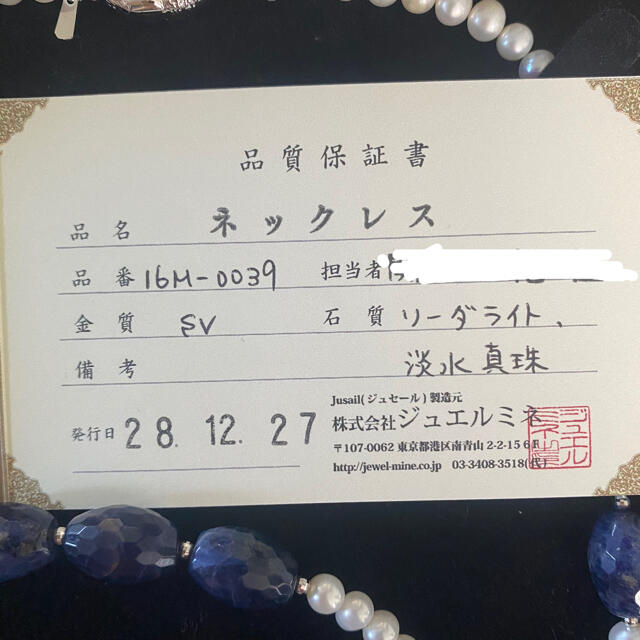 品質保証書
品名 ネックレス
品番 16M-0039 担当者
金質 SV 石質 リーダライト、
備考 淡水真珠
発行日 28.12.27
Jusail(ジュセール)製造元
株式会社ジュエルミネ
〒107-0062 東京都港区南青山2-2-15 6F
http://jewel-mine.co.jp 03-3408-3518(代)